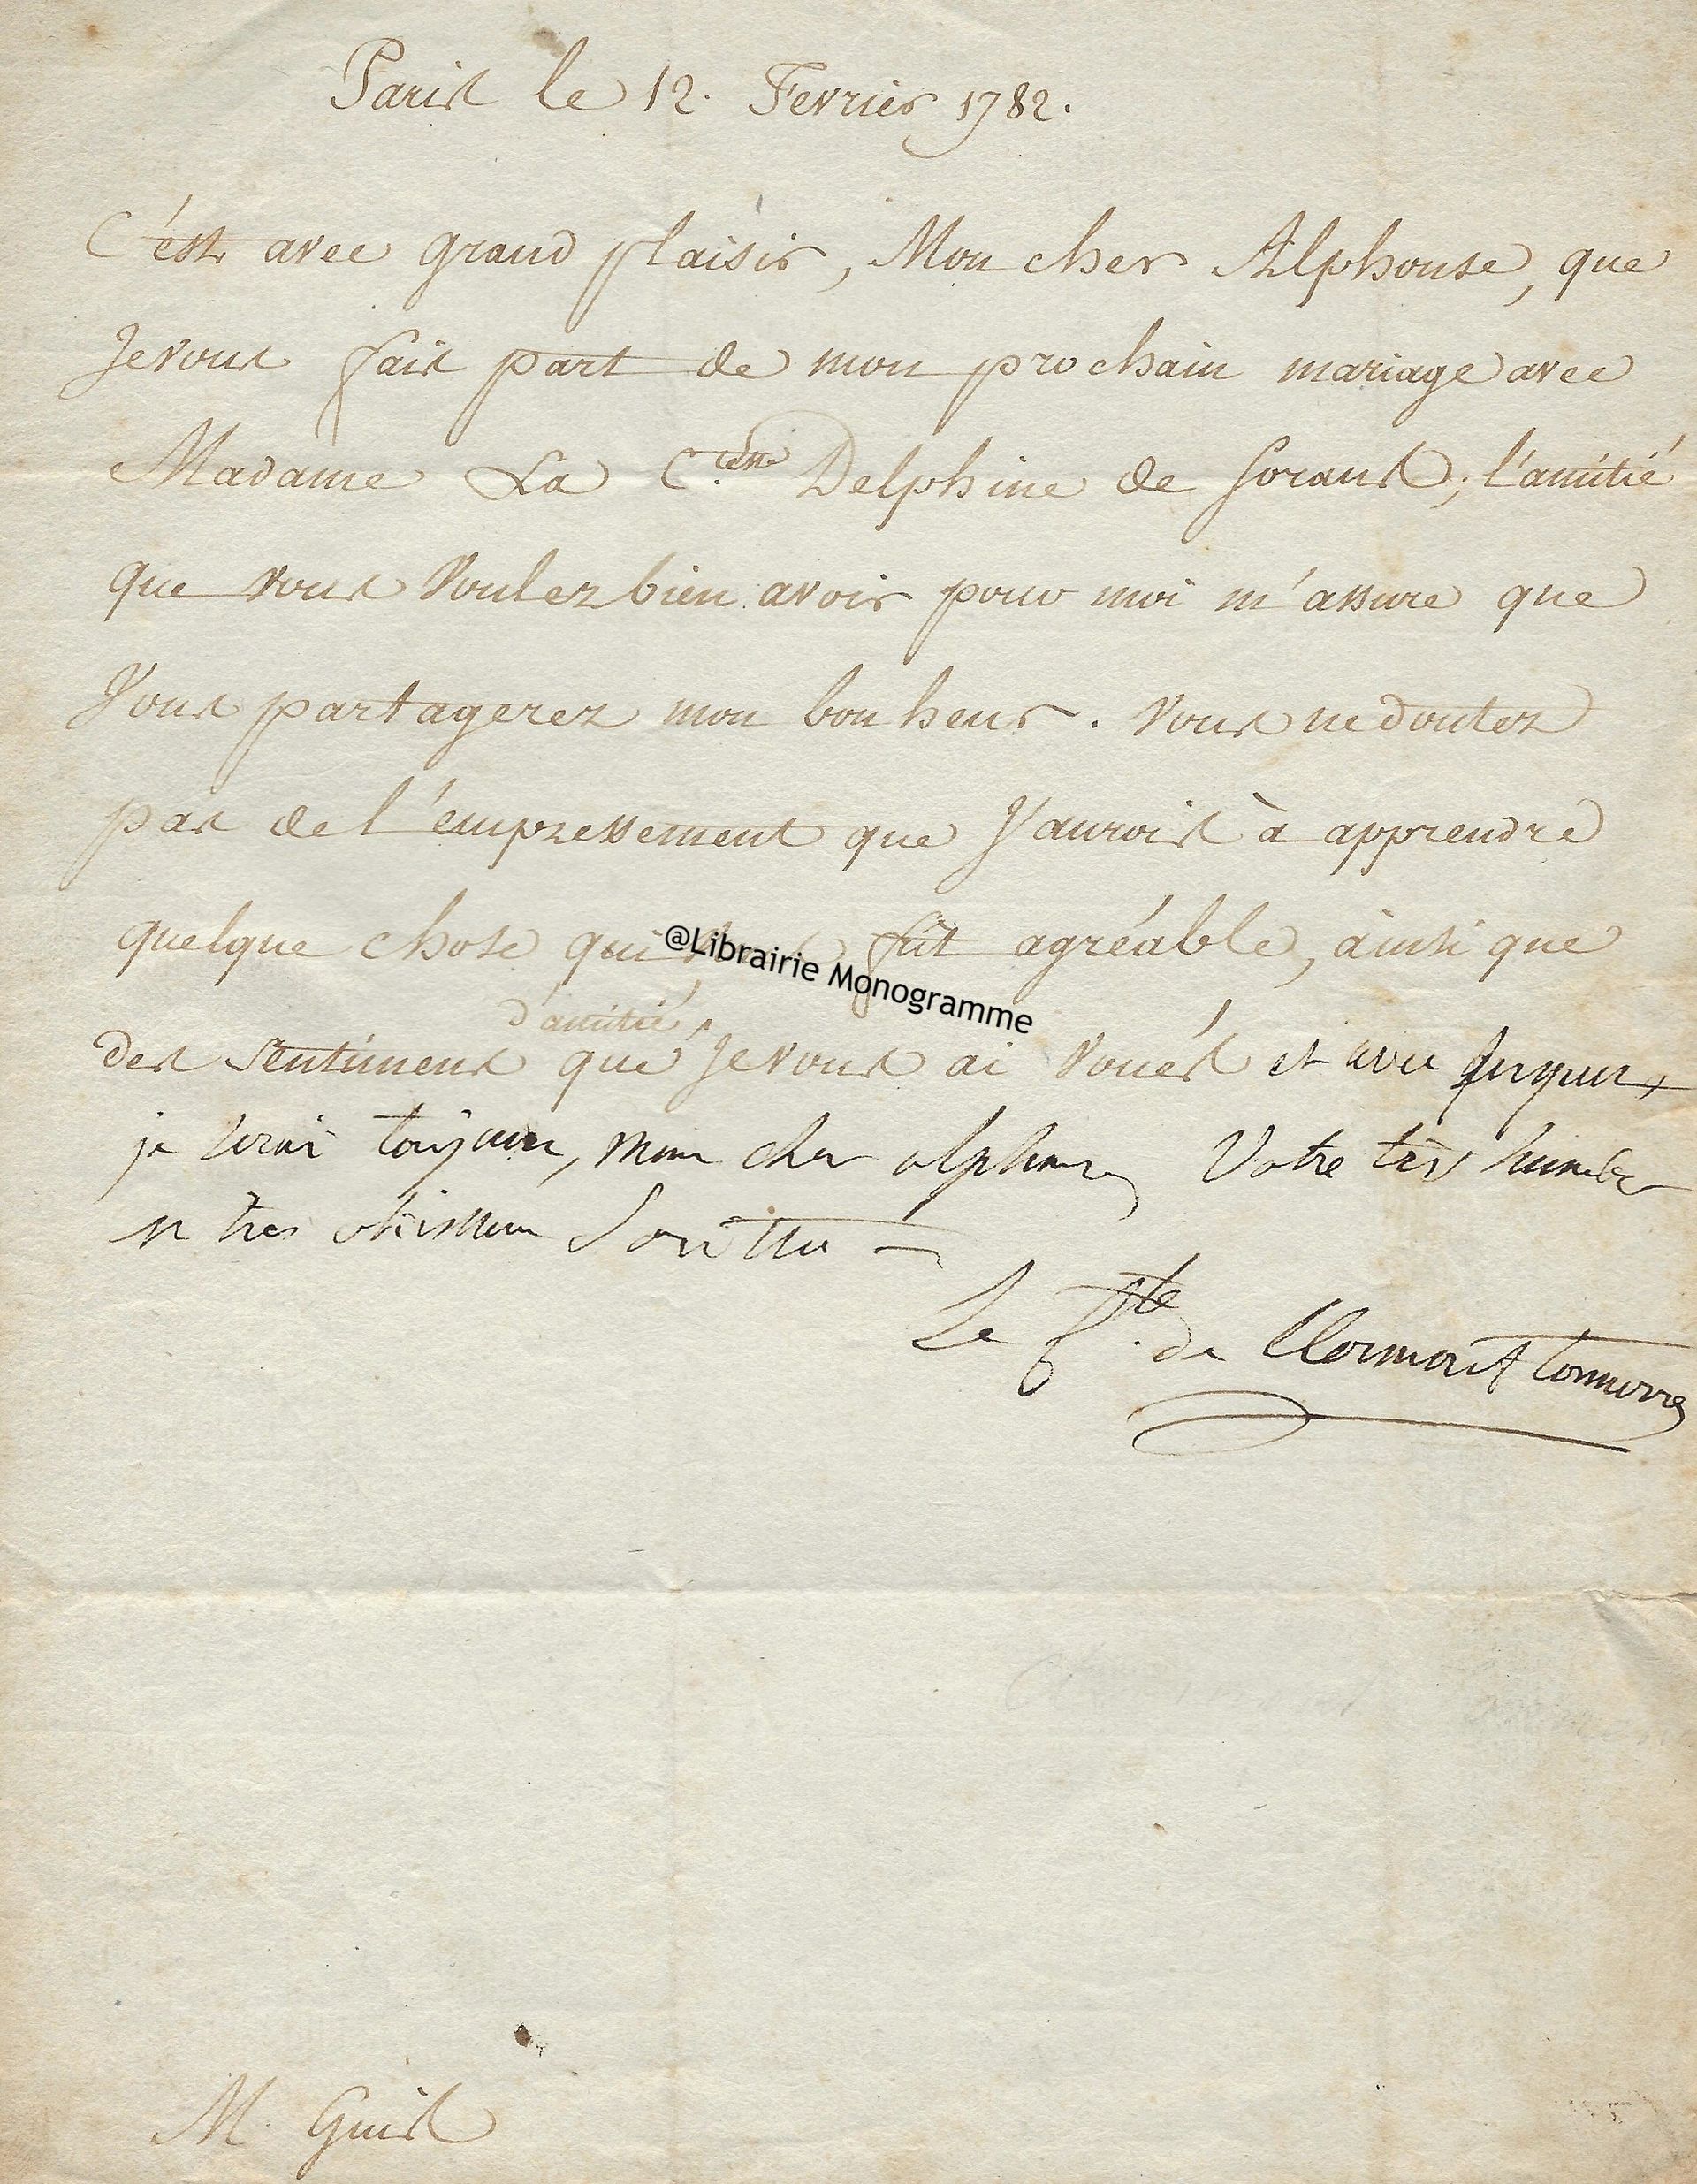 Paris le 12. Fevrier 1782.
C'est avec grand plaisir, Mon cher Alphonse, que
Je vous fais part de mon prochain mariage avec
Madame La C.tesse Delphine de Sorans; l'amitié
que vous voulez bien avoir pour moi m'assure que
Vous partagerez mon bonheur. Vous ne doutez
pas de l'empressement que J'aurois à apprendre
quelque chose qui fût agréable, ainsi que
@Librairie Monogramme
d'amitié
des sentimens que Je vous ai voués et avec
je serai toujours, mon cher alphonse, Votre très humble
et tres obeissant
Le de Clermont tonnerre
M. Guis